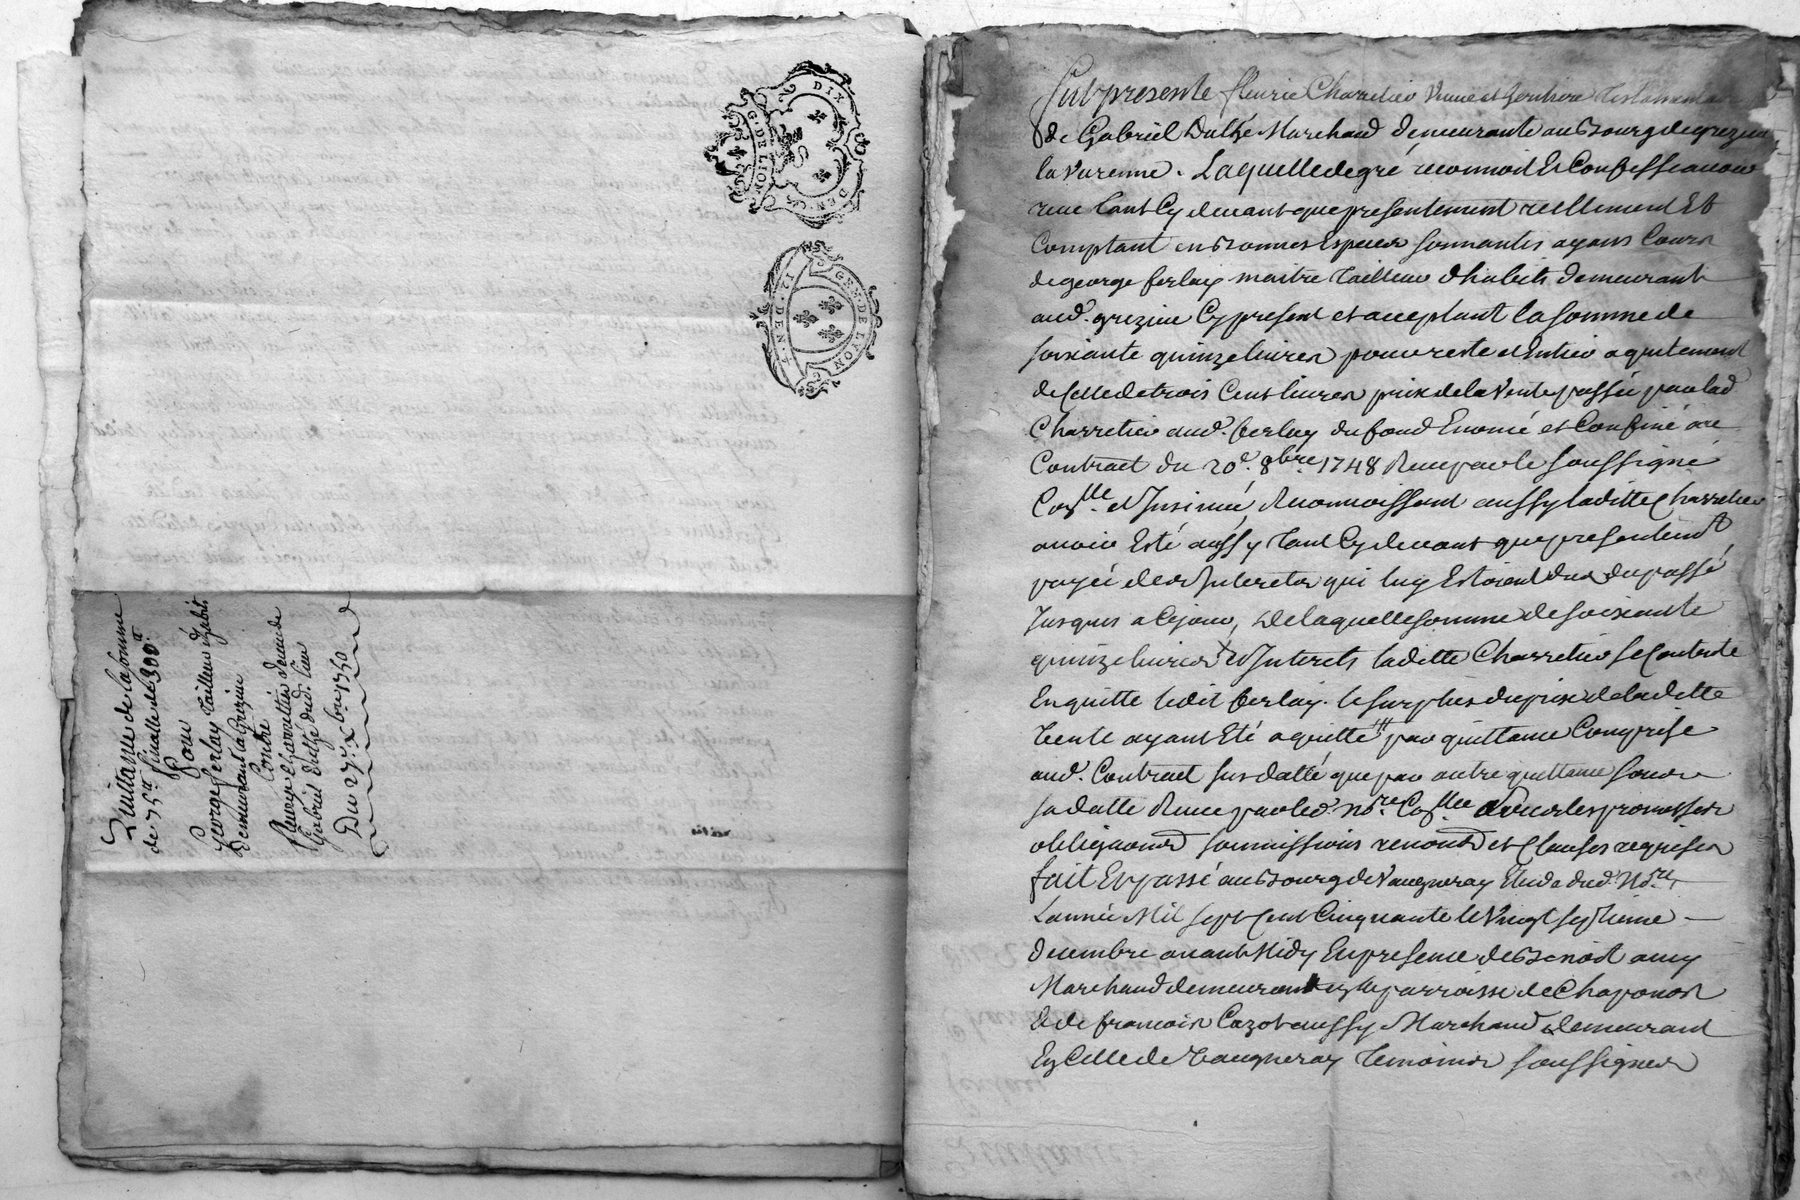 G. DE LION
DIX
DEN.
GEN. DE LYON
12. DEN. I
Quittance de la somme
de 75ᵗᵗ finalle de 300ᵗᵗ
Pour
George Ferlay Tailleur d'habits
Demeurant a Grezieu
Contre
Fleurie Charretier veuve de
Gabriel Dulhe dud. lieu
Du 27ᵉ Xbre 1750
Fut presente fleurie Charretier veuve et heritiere Testamentaire
de Gabriel Dulhe Marchand demeurante au Bourg de grezieu
la Varenne. Laquelle de gré reconnoit et Confesse avoir
receu tant Cy devant que presentement reellement Et
Comptant en Bonnes Especes sonnantes ayans Cours
de george ferlay maitre Tailleur d'habits demeurant
aud. grezieu Cy present et acceptant la somme de
soixante quinze livres pour reste et Entier aquitement
de Celle de trois Cent livres prix de la Vente passée par lad
Charretier aud. ferlay du fond Enoncé et Confiné au
Contract du 20ᵉ. 8bre 1748 Receu par le soussigné
Coₙˡˡᵉ et Insinué, Reconnoissant aussy laditte Charretier
avoir Esté aussy tant Cy devant que presentemᵗ
payée des Interets qui luy Estoient dus du passé
Jusques a Ce jour, De laquelle somme de soixante
quinze livres et Interets ladette Charretier se Contente
En quitte ledit ferlay. le surplus du prix de ladette
Vente ayant Eté aquitté par quittance Comprise
aud. Contract sus datté que par autre quittance sous
sa datte Receu par led. Nʳᵉ Coₙˡˡᵉ avec les promesses
obligaons soumissions renonᵒⁿˢ et Clauses requises
fait Et passé au Bourg de Vaugneray Etude dud. Nʳᵉ,
L'année Mil sept Cent Cinquante le Vingt septieme
decembre avant Midy En presence de Benoit amy
Marchand demeurant en la parroisse de Chaponost
Et de francois Cazot aussy Marchand demeurant
En Celle de Vaugneray Temoins soussignes